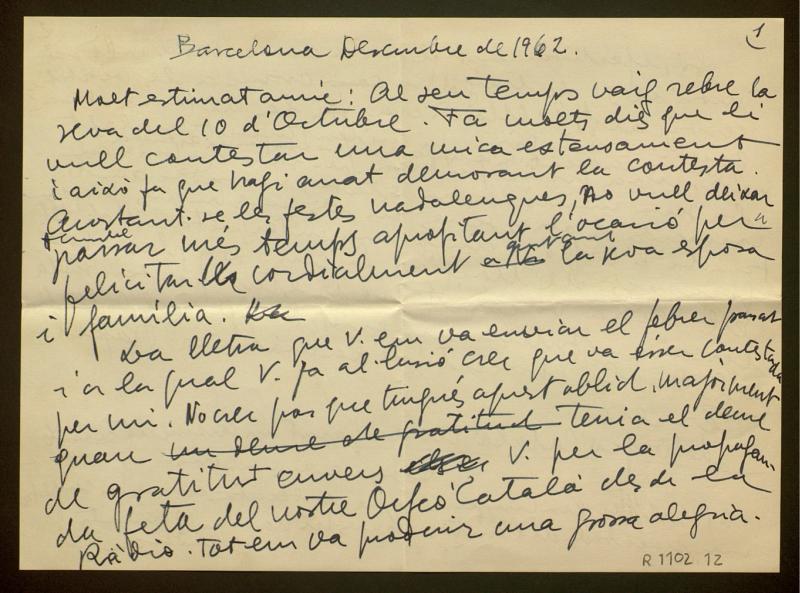 1
Barcelona Desembre de 1962.
Molt estimat amic: Al seu temps vaig rebre la
seva del 10 d'Octubre. Fa molts dies que li
vull contestar una mica extensament
i això fa que hagi anat demorant la contesta.
Acostant-se les festes nadalengues, no vull deixar
passar més temps aprofitant l'ocasió per a
felicitar-lo cordialment la seva esposa
i família.
La lletra que V. em va enviar el febrer passat
i a la qual V. fa al·lusió crec que va ésser contestada
per mi. No crec pas que tingués aquest oblid, majorment
quan un deure de gratitud tenia el deure
de gratitut envers V. per la propagan-
da feta del nostre Orfeó Català des de la
Ràdio. Tot em va produir una grossa alegria.
R 1102 12